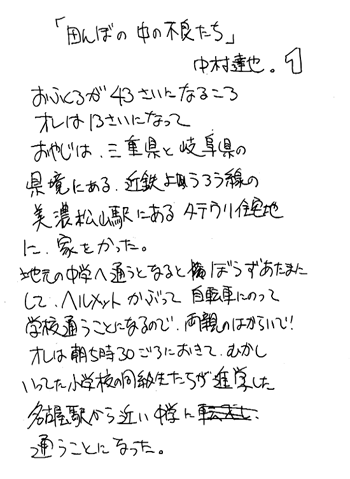 「田んぼの中の不良たち」
中村達也。 1
おふくろが43さいになるころ
オレは13さいになって
おやじは、三重県と岐阜県の
県境にある、近鉄よりろう線の
美濃松山駅にあるタテウリ住宅地
に、家をかった。
地元の中学へ通うとなるとぼうずあたまに
して、ヘルメットかぶって自転車にのって
学校通うことになるので、両親のはからいで!
オレは朝5時30ごろにおきて、むかし
いってた小学校の同級生たちが進学した
名古屋駅から近い中学に転入し、
通うことになった。